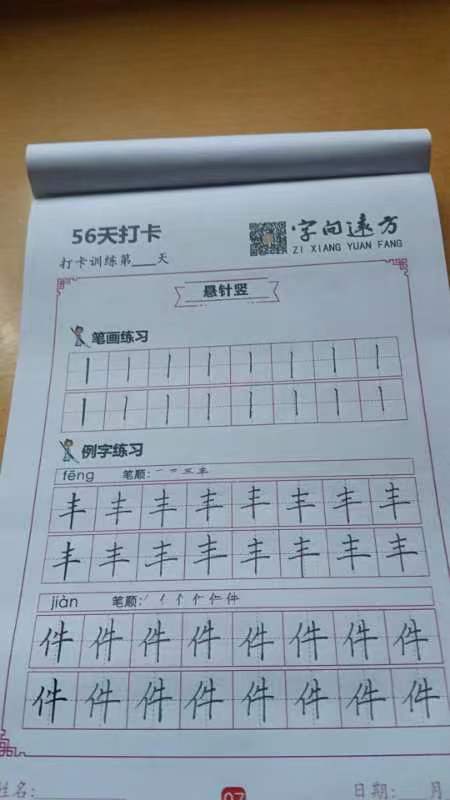 56天打卡
字向远方
ZI XIANG YUAN FANG
打卡训练第___天
悬针竖
笔画练习
丨 丨 丨 丨 丨 丨 丨 丨
丨 丨 丨 丨 丨 丨 丨 丨
例字练习
fēng 笔顺:一 二 三 丰
丰 丰 丰 丰 丰 丰 丰 丰
丰 丰 丰 丰 丰 丰 丰 丰
jiàn 笔顺:
件 件 件 件 件 件 件 件
件 件 件 件 件 件 件 件
姓名:
日期: 月